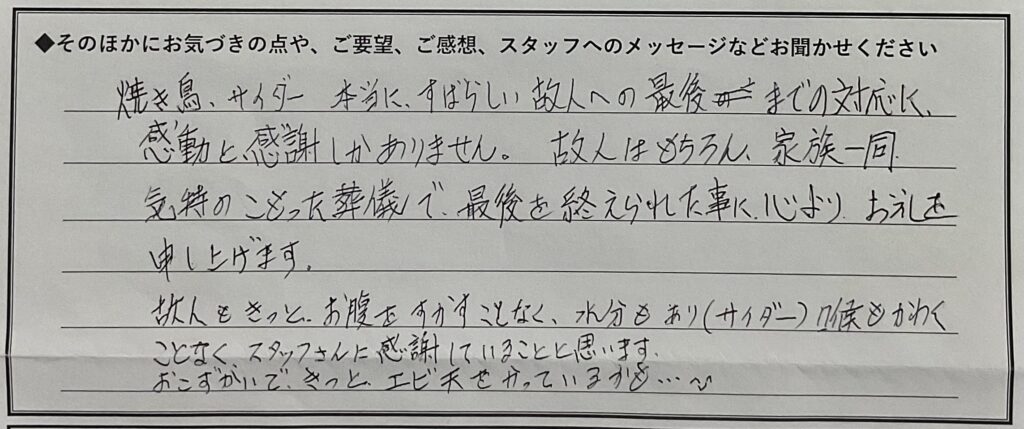 ◆そのほかにお気づきの点や、ご要望、ご感想、スタッフへのメッセージなどお聞かせください
焼き鳥、サイダー 本当に、すばらしい故人への最後までの対応に、
感動と、感謝しかありません。 故人はもちろん、家族一同
気持のこもった葬儀で、最後を終えられた事に、心より、お礼を
申し上げます。
故人もきっと、お腹をすかすことなく、水分もあり(サイダー)喉もかわく
ことなく、スタッフさんに感謝していることと思います。
おこずかいで、きっと、エビ天をかっているかも…〜